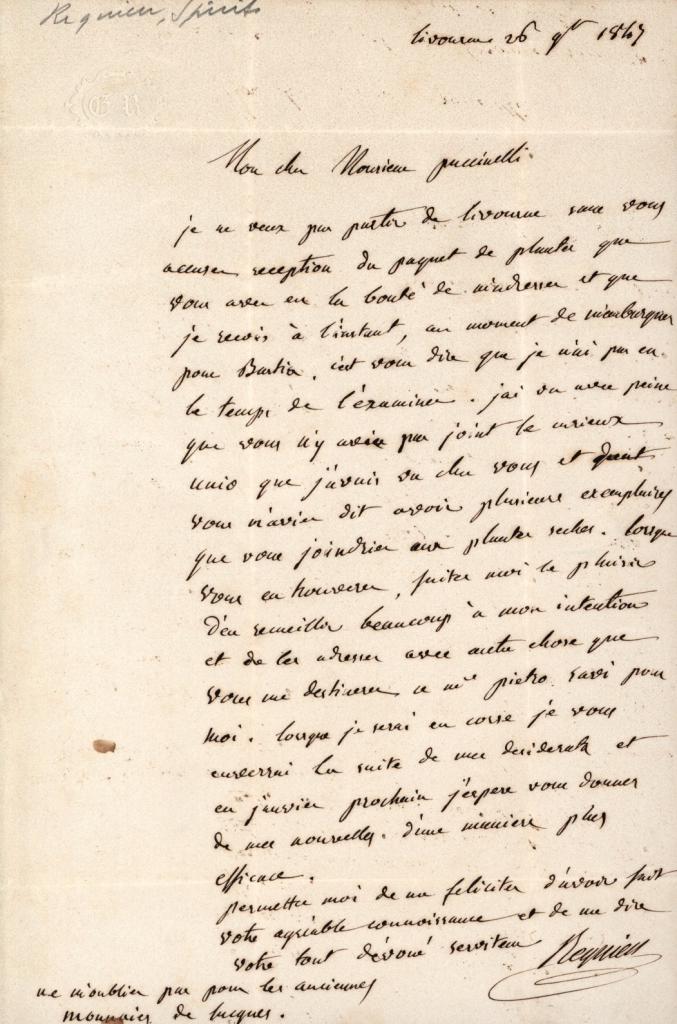 Requien, Spirit
livourne 26 9bre 1847
G R
Mon cher Monsieur puccinelli.
je ne veux pas partir de livourne sans vous
accuser reception du paquet de plantes que
vous avez eu la bonté de m'adresser et que
je reçois à l'instant, au moment de m'embarquer
pour Bastia, c'est vous dire que je n'ai pas eu
le temps de l'éxaminer. j'ai vu avec peine
que vous n'y aviez pas joint le curieux
unio que j'avais vu chez vous et dont
vous m'aviez dit avoir plusieurs exemplaires
que vous joindriez aux plantes seches. lorsque
vous en trouverez, faites moi le plaisir
d'en recueillir beaucoup à mon intention
et de les adresser avec autre chose que
vous me destinerez a mr pietro savi pour
moi. lorsque je serai en corse je vous
enverrai la suite de mes desiderata et
en janvier prochain j'espere vous donner
de mes nouvelles d'une maniere plus
efficace.
permettez moi de me feliciter d'avoir fait
votre agréable connoissance et de me dire
votre tout dévoué serviteur
Requien
ne m'oubliez pas pour les anciennes
monnaies de lucques.